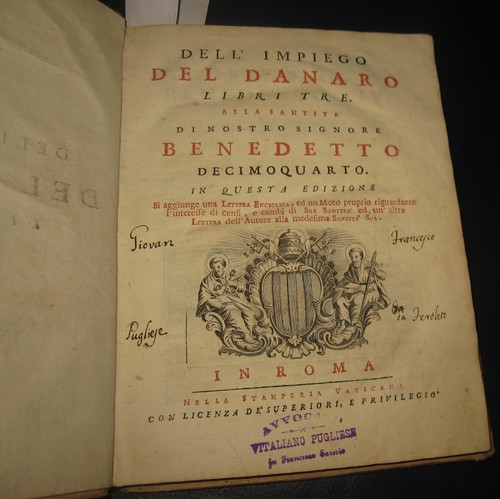 DELL' IMPIEGO
DEL DANARO
LIBRI TRE.
ALLA SANTITA'
DI NOSTRO SIGNORE
BENEDETTO
DECIMOQUARTO.
IN QUESTA EDIZIONE
Si aggiunge una LETTERA ENCICLICA, ed un Moto proprio riguardante
l'interesse di censi, e cambj di SUA SANTITA' ed, un' altra
LETTERA dell'Autore alla medesima SANTITA' SUA.
Giovan Francesco
Pugliese da Feroleto
IN ROMA
NELLA STAMPERIA VATICANA
CON LICENZA DE' SUPERIORI, E PRIVILEGIO
AVVOCATO
VITALIANO PUGLIESE
fu Francesco Saverio